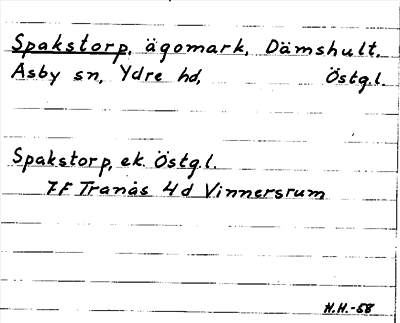 Spakstorp, ägomark, Dämshult,
Asby sn, Ydre hd, Östg.l.
Spakstorp, ek. Östg.l.
7F Tranås 4d Vinnersrum
H.H.-58